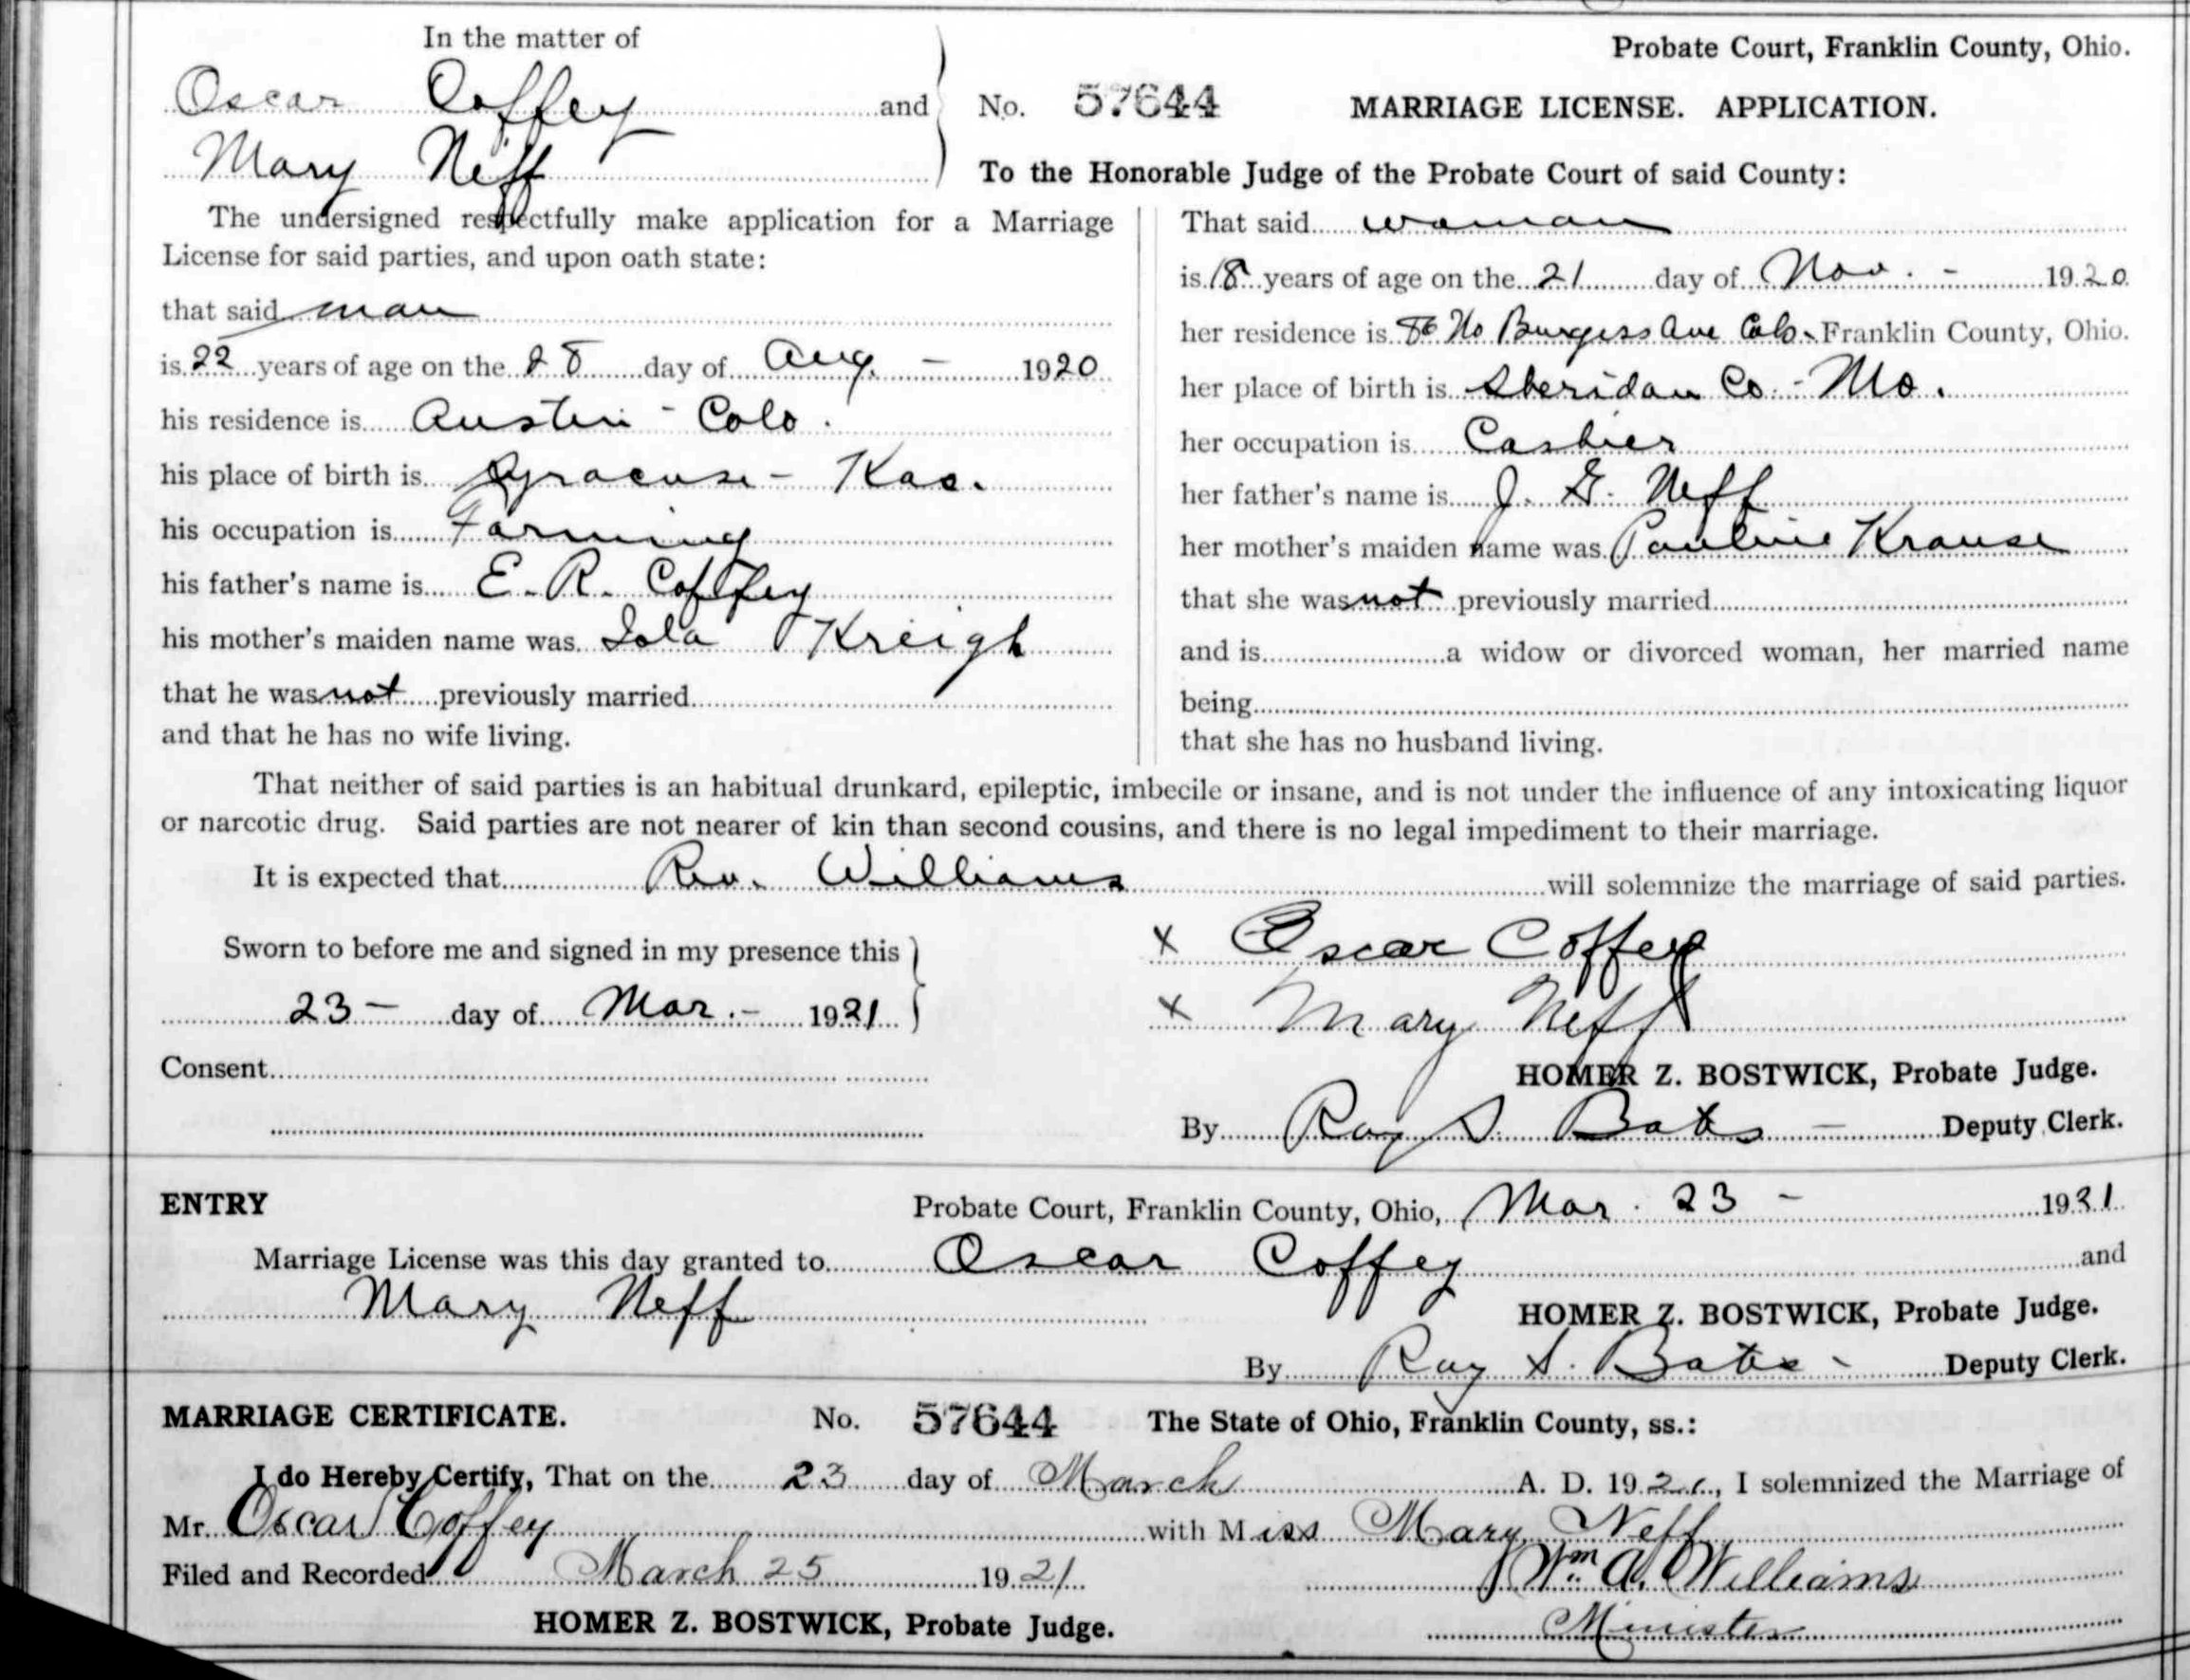 In the matter of
Oscar Coffey and
Mary Neff
Probate Court, Franklin County, Ohio.
No. 57644 MARRIAGE LICENSE. APPLICATION.
To the Honorable Judge of the Probate Court of said County:
The undersigned respectfully make application for a Marriage
License for said parties, and upon oath state:
that said man
is 22 years of age on the 28 day of Aug. - 1920
his residence is Austin - Colo.
his place of birth is Syracuse - Kas.
his occupation is Farming
his father's name is E. R. Coffey
his mother's maiden name was Iola Kreigh
that he was not previously married
and that he has no wife living.
That said woman
is 18 years of age on the 21 day of Nov. - 1920
her residence is 86 No Burgess Ave Cols. Franklin County, Ohio.
her place of birth is Sheridan Co. - Mo.
her occupation is Cashier
her father's name is J. G. Neff
her mother's maiden name was Pauline Krause
that she was not previously married
and is a widow or divorced woman, her married name
being
that she has no husband living.
That neither of said parties is an habitual drunkard, epileptic, imbecile or insane, and is not under the influence of any intoxicating liquor
or narcotic drug. Said parties are not nearer of kin than second cousins, and there is no legal impediment to their marriage.
It is expected that Rev. Williams will solemnize the marriage of said parties.
Sworn to before me and signed in my presence this
23 - day of Mar. - 1921
Consent
x Oscar Coffey
x Mary Neff
HOMER Z. BOSTWICK, Probate Judge.
By Ray S. Bates - Deputy Clerk.
ENTRY Probate Court, Franklin County, Ohio, Mar. 23 - 1921
Marriage License was this day granted to Oscar Coffey and
Mary Neff
HOMER Z. BOSTWICK, Probate Judge.
By Ray S. Bates - Deputy Clerk.
MARRIAGE CERTIFICATE. No. 57644 The State of Ohio, Franklin County, ss.:
I do Hereby Certify, That on the 23 day of March A. D. 1921, I solemnized the Marriage of
Mr. Oscar Coffey with Miss Mary Neff
Filed and Recorded March 25 1921 Wm. A. Williams
HOMER Z. BOSTWICK, Probate Judge. Minister